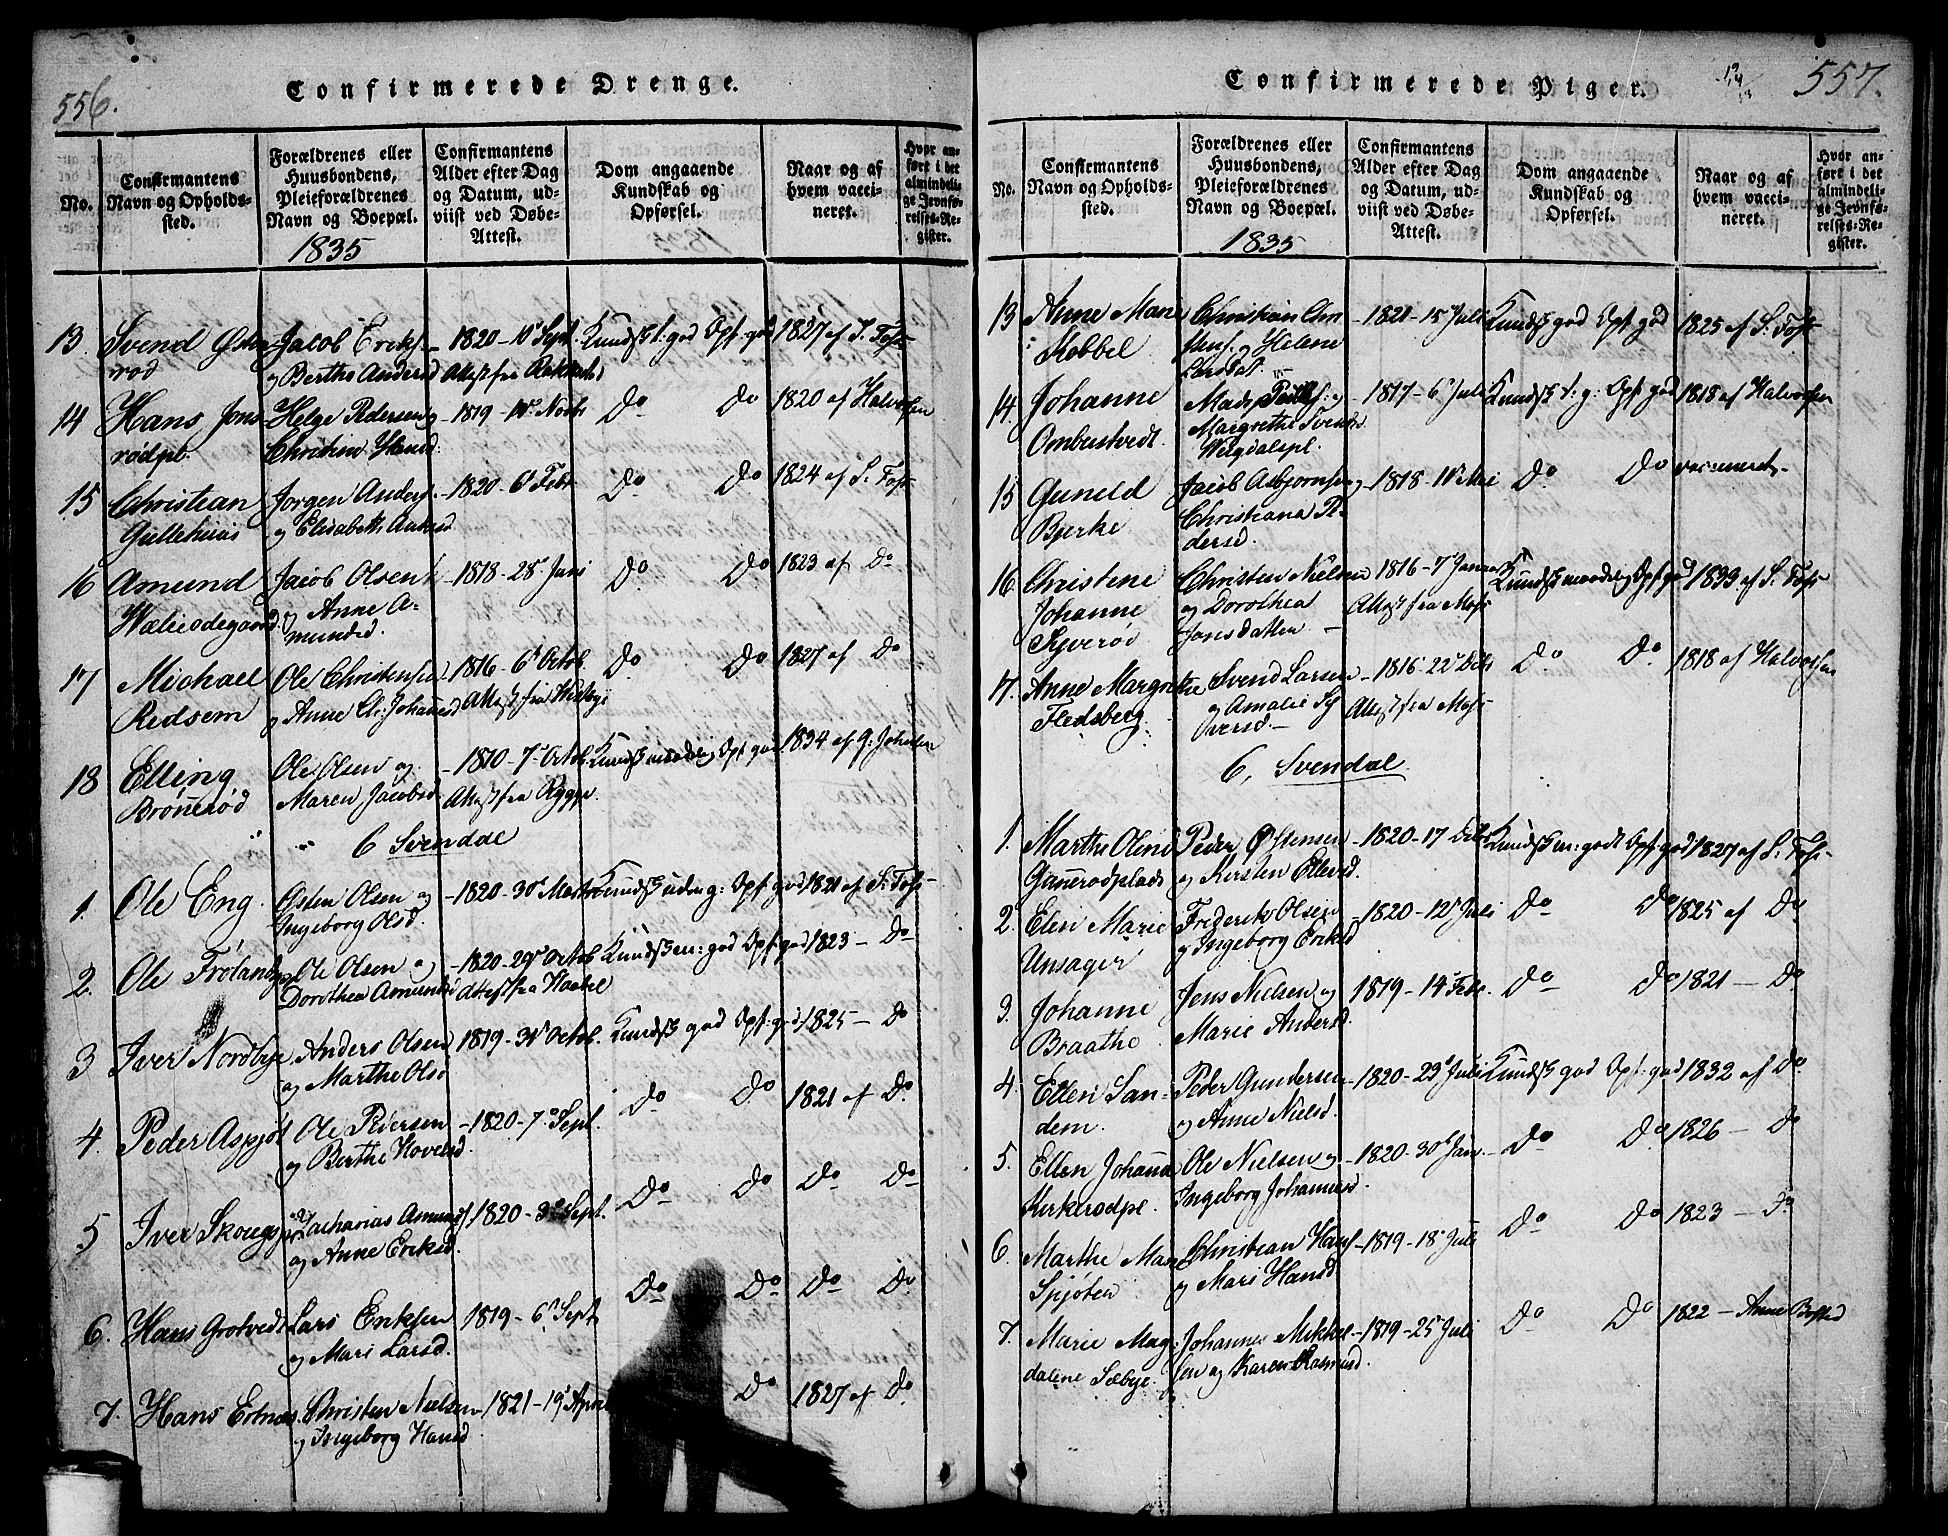 556.
Confirmerede Drenge.
No.
Confirmantens Navn og Opholdssted.
Forældrenes eller Huusbondens, Pleieforældrenes Navn og Boepæl.
Confirmantens Alder efter Dag og Datum, udviist ved Døbe-Attest.
Dom angaaende Kundskab og Opførsel.
Naar og af hvem vaccineret.
Hvor anført i det almindelige Jevnførelses-Register.
1835
13. Svend Østenrød Jacob Eriks. - 1820 - 10 Sept. Kundsk t. god Opf. god 1827 af S. Foss
og Berthe Andersd Attest fra
14 Hans Jonsrødpl. Helge Pedersen og 1819 - Novbr Do Do 1820 af Halvorsen
Christine Hansd.
15 Christian Gullehuus Jørgen Anders. - 1820 - 6 Febr Do Do 1824 af S. Foss
og Elisabeth
16 Amund Jacob Olsen - 1818 - 28 Juni Do Do 1823 af Do
og Anne Amundsd.
17 Michael Redsem Ole Christensen 1816 - 6 Octob. Do Do 1827 af Do
og Anne C. Johannesd Attest fra
18 Elling Brönnerød Ole Olsen og - 1810 - 7 Octob. Kundsk maadelig Opf. god 1834 af G. Johnsen
Maren Jacobsd. Attest fra Rygge.
6 Svendal
1. Ole Eng. Østen Olsen og - 1820 - 30 Martz Kundsk g: Opf. god 1821 af S. Foss
Ingeborg Olsd.
2. Ole Frölandspl Ole Olsen og - 1820 - 29 Octob. Kundsk m: god Opf. god 1823 - Do
Dorothea Amundsd Attest fra Haabel
3 Iver Nordbye Anders Olsen 1819 - 31 Octob. Kundsk god Opf. god 1825 - Do
og Marthe Olsd
4. Peder Ole Pedersen - 1820 - 7 Sept. Do Do 1821 af Do
og Berthe Hovelsd.
5 Iver Zacharias Amunds. 1820 - 3 Sept. Do Do Do Do
og Anne Eriksd.
6. Hans Grotvedt Lars Eriksen 1819 - 6 Sept. Do Do Do Do
og Mari Larsd.
7. Hans Ertnæs. Christen Nielsen - 1821 - 19 April Do 1827 af Do
og Ingeborg Hansd
557.
Confirmerede Piger.
No.
Confirmantens Navn og Opholdssted.
Forældrenes eller Huusbondens, Pleieforældrenes Navn og Boepæl.
Confirmantens Alder efter Dag og Datum, udviist ved Døbe-Attest.
Dom angaaende Kundskab og Opførsel.
Naar og af hvem vaccineret.
Hvor anført i det almindelige Jevnførelses-Register.
1835
13 Anne Marie Mobbel Christian Christens. og Helene Larsdat. - 1821 - 15 Juli Kundsk god Opf. god 1825 af S. Foss
14. Johanne Ombustvedt. Mads og Margrethe Svends 1817 - 6 Juli Kundsk t. g. Opf. god 1818 af Halvorsen
15 Guneld Bjerke Jacob Asbjørnsen og Christiana Pedersd. - 1818 - Mai Do Do vaccineret.
16. Christene Johanne Christen Nielsen og Dorothea Jonsdatter - 1816 - 7 Januar Kundsk maadelig Opf. god 1833 af S. Foss
Attest fra Moss
17. Anne Margrethe Fledsberg. Svend Larsen og Amalie Syversd. - 1816 - 22 Debr Do Do 1818 af Halvorsen
Attest fra Moss
6, Svendal.
1. Marthe Oline Ganerødplads Peder Østensen og Kirsten Ellevsd. - 1820 - 17 Debr Kundsk m: godt Opf. god 1827 af S. Foss
2. Elen Marie Unsager Frederik Olsen og Ingeborg Eriksd - 1820 - 12 Juli Do Do 1825 af Do
3. Johanne Braathe Jens Nielsen og Marie Andersd. 1819 - 14 Febr. Do Do 1821 - Do
4. Ellen Sandem. Peder Gundersen og Anne Nielsd. - 1820 - 23 Juli Kundsk god Opf. god 1832 af Do
5. Ellen Johanna Kirkerodpl. Ole Nielsen og Ingeborg Johannesd. - 1820 - 30 Jan. Do Do 1826 - Do
6. Marthe Marie Spjøten Christian Hans. og Mari Hansd - 1819 - 18 Juli Do Do 1823 - Do
7. Marie Magdalene Sæbye. Johannes Mikkelsen og Karen Rasmusd. - 1819 - 25 Juli Do Do 1822 - Anne